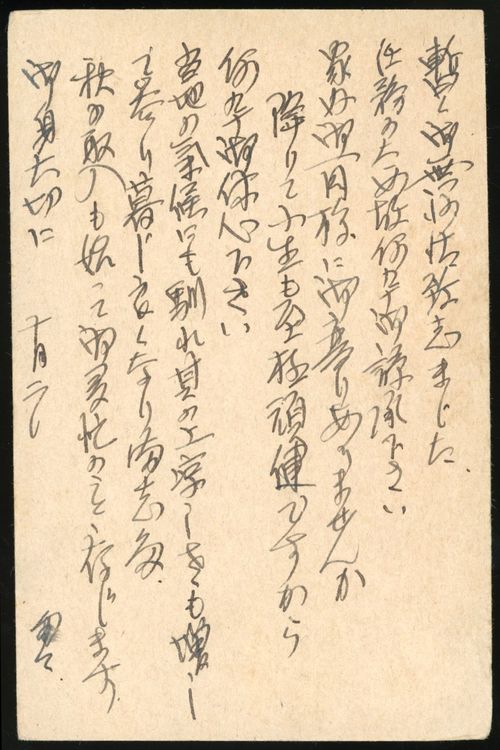 暫く御無沙汰致志ました
任務のため故何卒御諒承下さい
家内御一同様に御変りありませんか
降りて小生も至極頑健ですから
何卒御休心下さい
当地の気候にも馴れ其の上涼しさも増し
て益々暮し良くなり満志た
秋の取入も始って御多忙のことゝ存じます
御身大切に
十月二